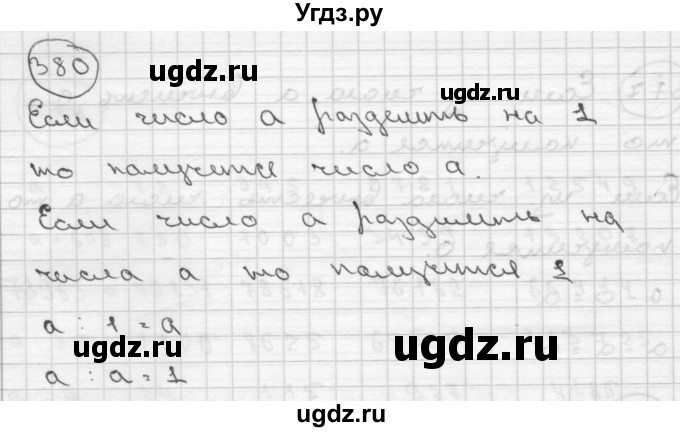 Угдз.ру
380
ugdz.ru
ugdz.ru
Если число а разделить на 1
то получется число а.
Если число а раздилить на
числа а то получится 1
а : 1 = а
а : а = 1
ugdz.ru
ugdz.ru
ugdz.ru